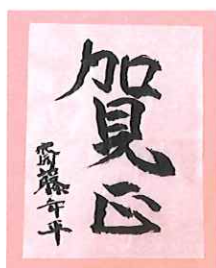 賀正
齋藤年平